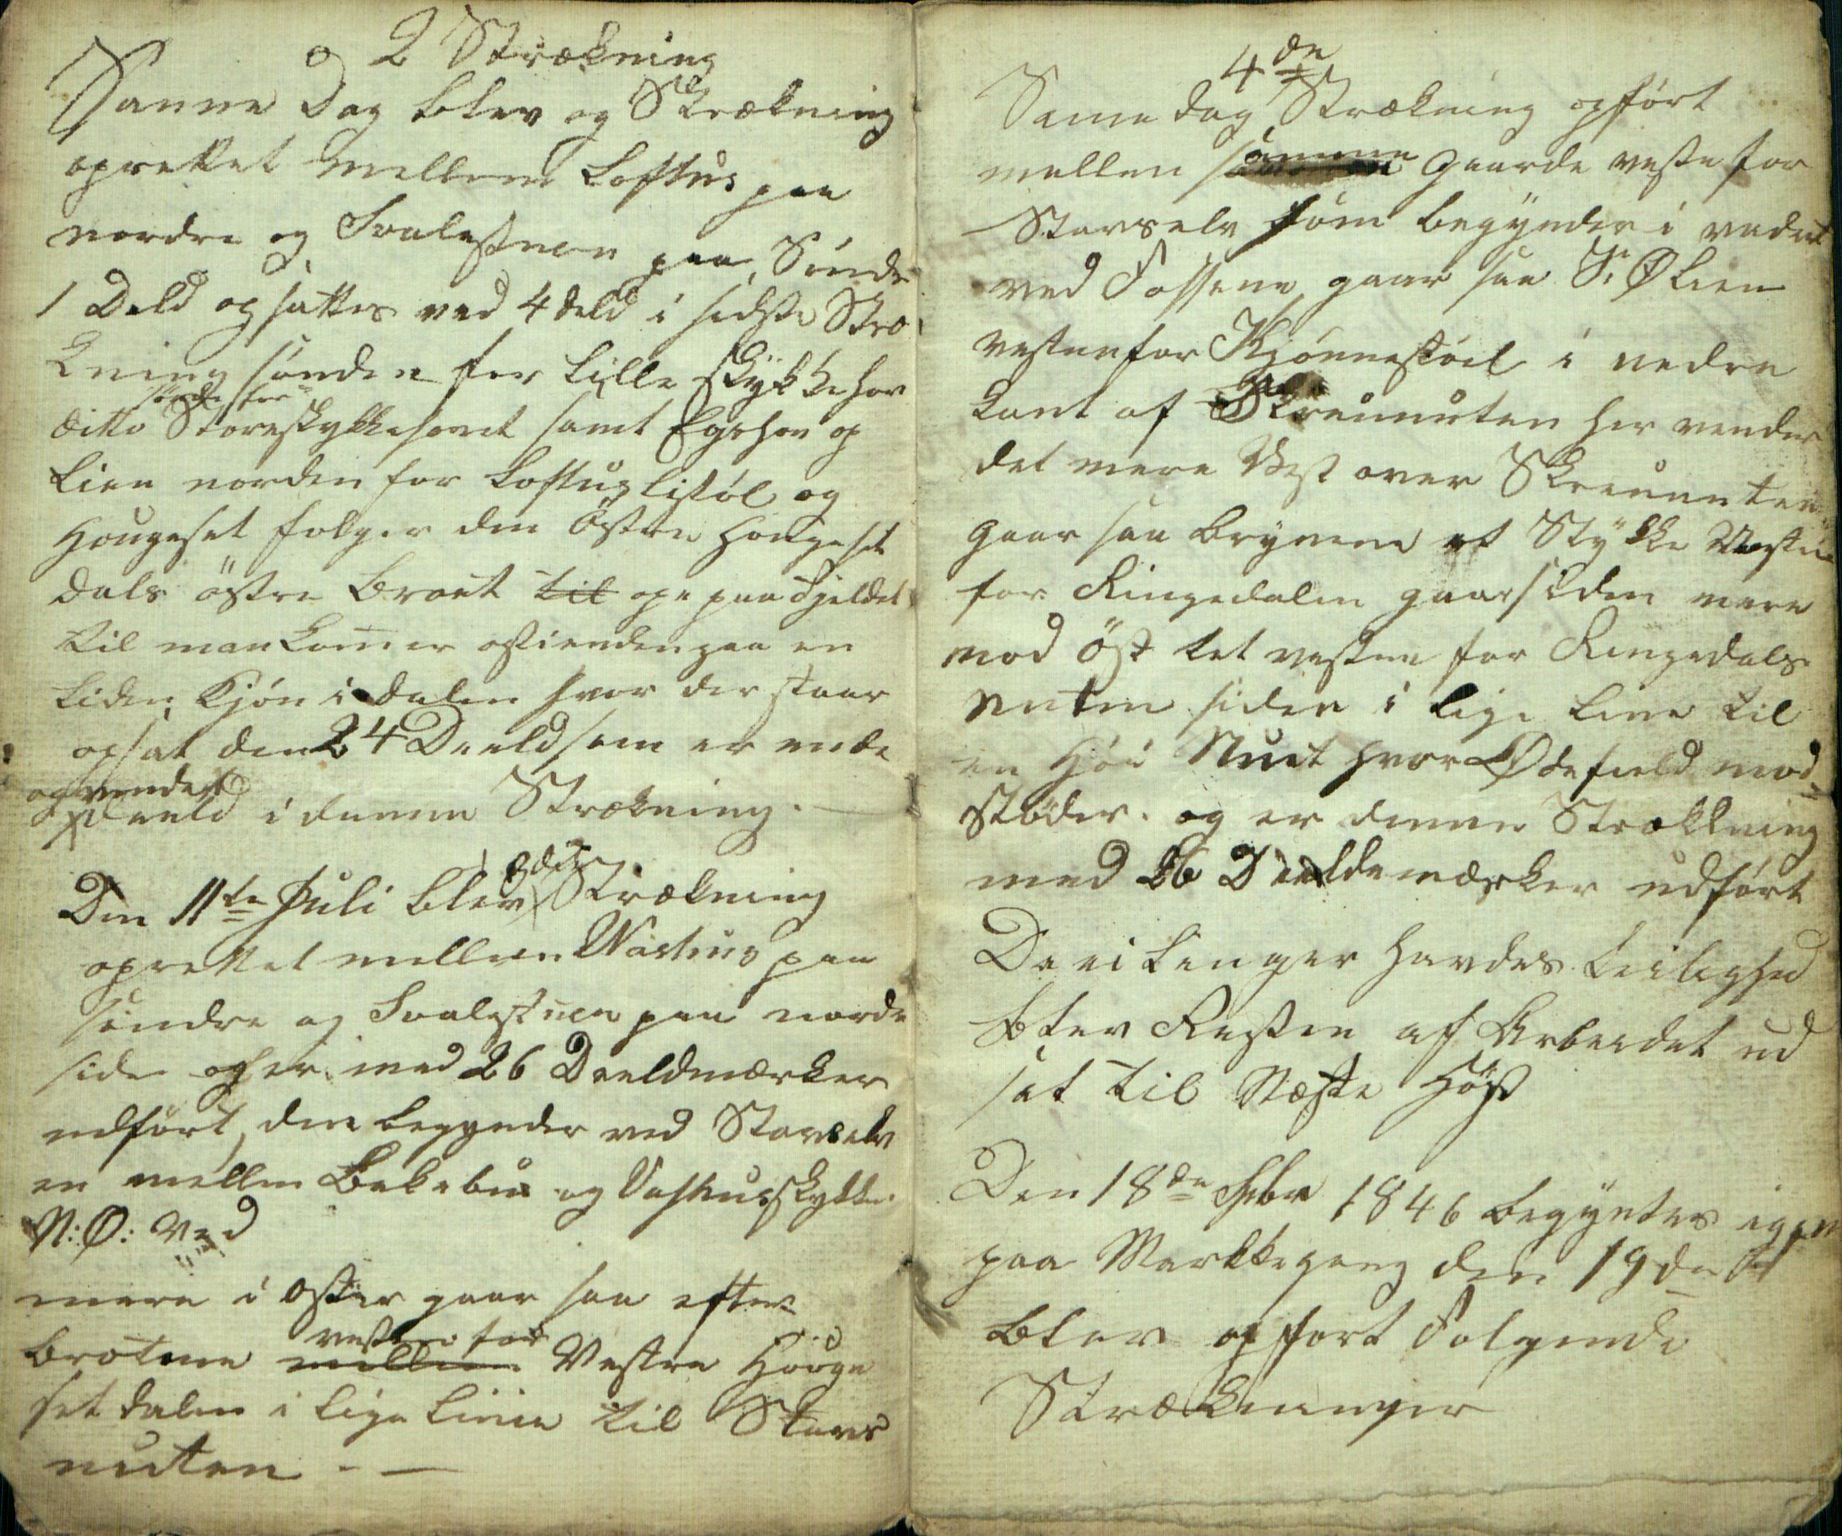 2 Strækning
Samme Dag blev og Strækning
oprettet mellem Loftus paa
nordre og Svalestuen paa Söndr
1 Deld opsattes ved 4 deld i sidste Stræ
kning sönden for Lille Stykkehov
ditto Storestykkehovet samt Egshov og
Lien norden for Loftuslistöl og
Hougeset følger den Östre Hougeset
dals östre Braat til ope paa Fjeldet
til man kommer ostienden paa en
liden Kjön i dalen hvor der staar
opsat den 24 Deeld som er ende
og vende
Deeld i denne Strækning. —
Den 11te Juli blev 3die Strækning
oprettet mellem Wasthus paa
söndre og Svalestuen paa nordre
side og er med 26 Deeldmærker
udfört, den begynder ved Starselv
en mellem Bekebu og Vasthusstykke
N:Ø: Ved
mere i Oster gaar saa efter
Brotene mellem vesten for Vestre Houge
set dalen i lige Linie til Stars
nuten - —
4de
Same dag Strækning opfört
mellen samme Gaarde veste for
Starselv som begynder i vadet
ved Fossene gaar saa S: Ø Lien
vestenfor Kjönnestöel i nedre
kant af Skreunuten her vender
det mere Vest over Skreunuten
gaar saa Brynene et Stykke Vesten
for Ringedalen gaar siden mere
mod Öst tet vesten for Ringedals
nuten siden i lige Line til
en Höi Nuut hvor Ødefield mod
stöder. og er denne Strækkning
med 26 Deeldemærker udfört
Da ei Lenger havdes Leilighed
blev Resten af Arbeidet ud
sat til Næste Höst
Den 18de 1846 begyntes igen
paa Markkegang den 19de
blev opfort Folgende
Strækninger